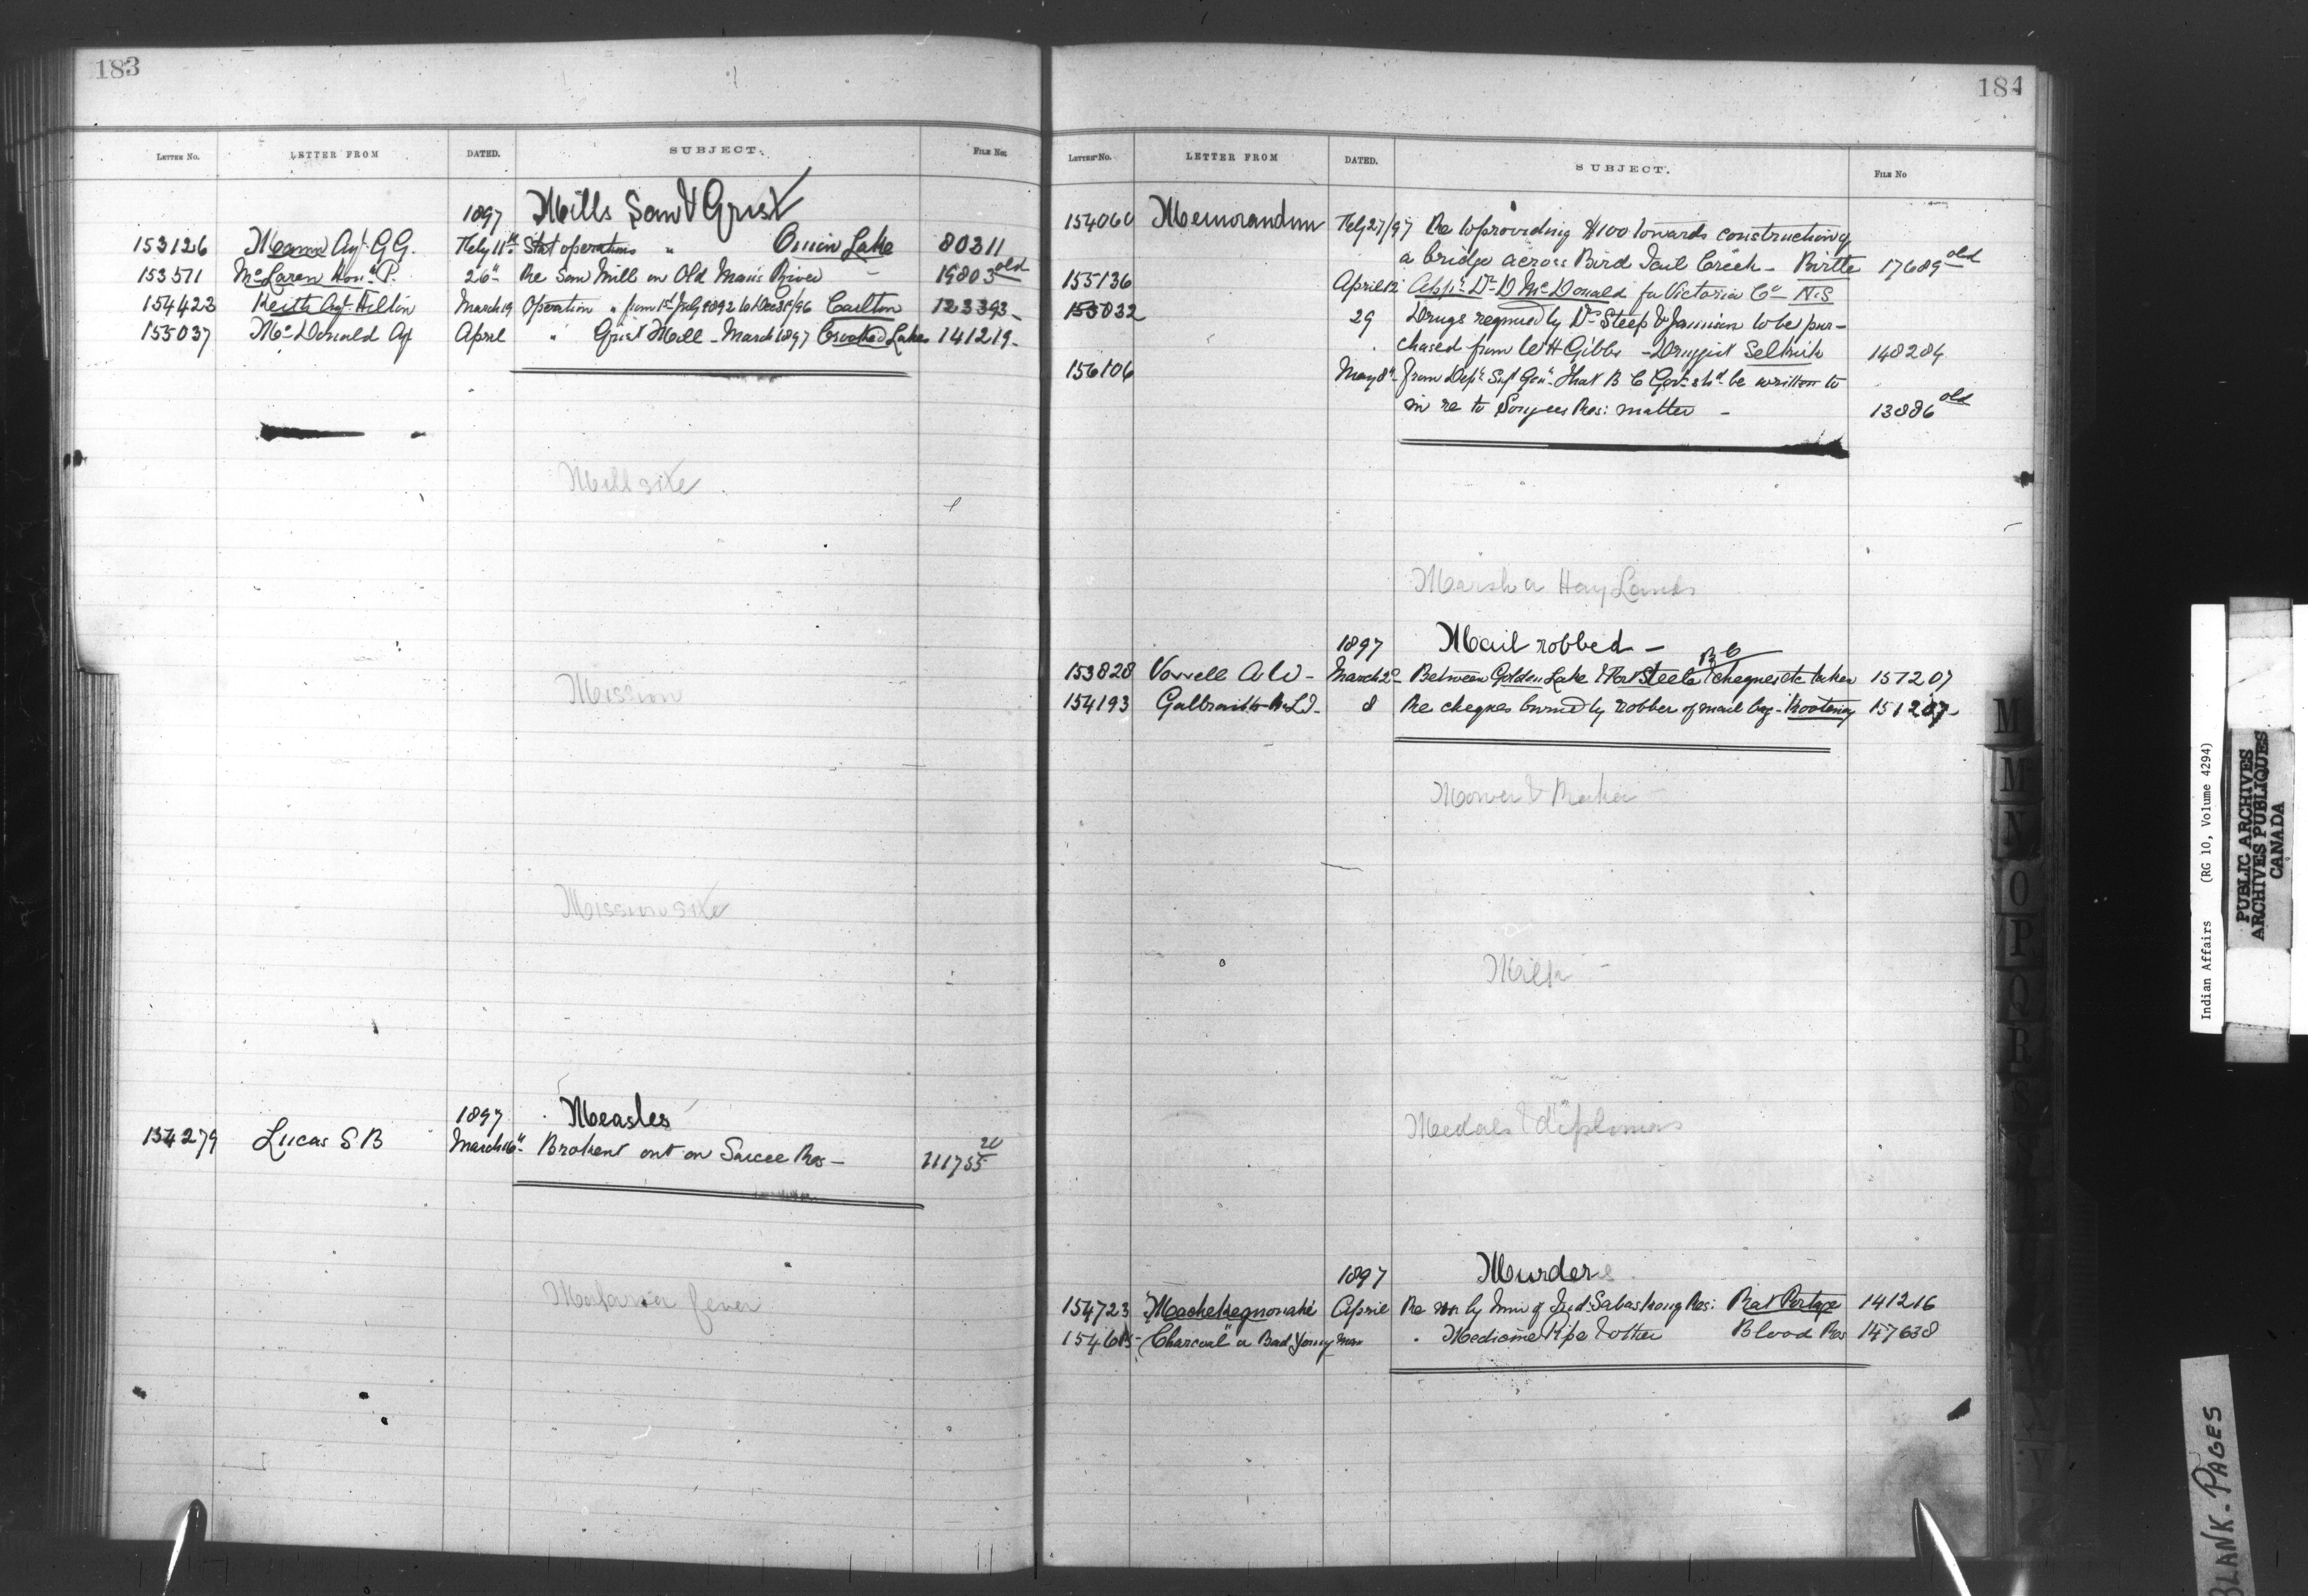 183
LETTER No. LETTER FROM DATED. SUBJECT. FILE No.
1897 Mills Saw & Grist
153126 Mann Agt G.G. Feby 11th Stat operations " Onion Lake 80311
153571 McLaren Hon. P. 26" Re Saw Mill on Old Man's River - 19803 old
154423 Keith Agt Hilton March 19 Operation " from 1st July 1892 to Dec 31/96 Carlton 123393-
155037 McDonald Agt April " Grist Mill - March 1897 Crooked Lakes 141219-
Mill site
Mission
Mission site
1897 Measles
154279 Lucas S B March 16" Broken out on Sarcee Res - 111755 20
Malaria fever
184
LETTER No. LETTER FROM DATED. SUBJECT. FILE No
154060 Memorandum Feby 27/97 Re to providing $100 towards construction of
a bridge across Bird Tail Creek - Birtle 17689 old
155136 April 12 App. Dr D McDonald for Victoria Co N.S
155832 29 Drugs required by Dr Steep & to be pur-
chased from W H Gibbs - Druggist Selkirk 148284
156106 May 8th from Dept. Supt Genl. that B C Govt shd be written to
in re to Songees Res: matter - 13886 old
Marsh a Hay Lands
1897 Mail robbed - B C
153828 Vowell A W - March 2d Between Golden Lake & Fort Steele cheques etc taken 151207
154193 Galbraith R.L.T. 8 Re cheques burned by robber of mail bag - Kootenay 151207-
Mower & Rake
Milk -
Medals & diplomas
1897 Murders
154723 "Machekequonabe April Re by Inn of Ind. Sabaskong Res: Rat Portage 141216
154685 "Charcoal" a Bad Young Man " Medicine Pipe & other Blood Res 147638
M
M
N
O
P
Q
R
S
Indian Affairs (RG 10, Volume 4294)
PUBLIC ARCHIVES
ARCHIVES PUBLIQUES
CANADA
BLANK - PAGES